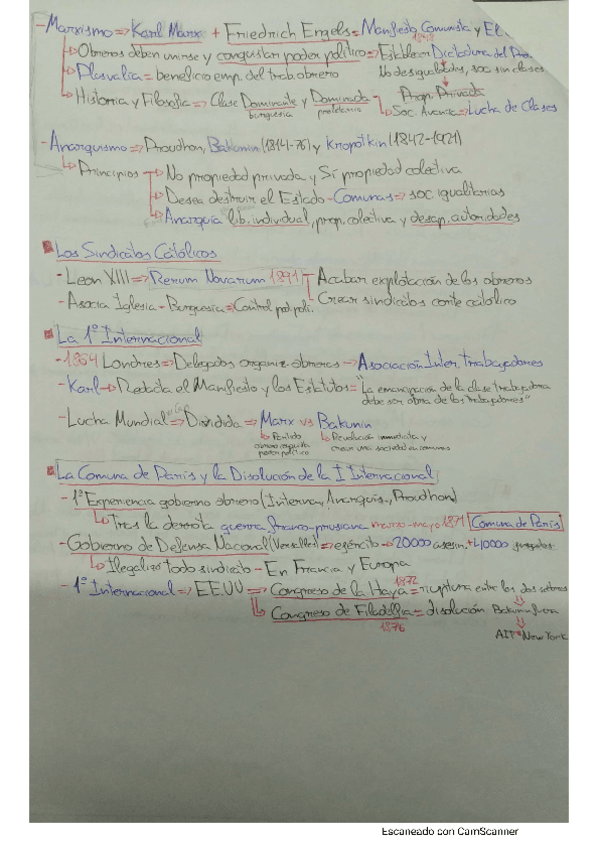 -Marxismo => Karl Marx + Friedrich Engels = Manifiesto Comunista y El
1848
↳ Obreros deben unirse y conquistar poder político => Establecer Dictadura del Pro
↳ Plusvalía = beneficio emp. del trab. obrero No desigualdades, soc. sin clases
Prop. Privada
↳ Historia y Filosofía => Clase Dominante y Dominada
burguesía proletarios
↳ Soc. Avanza => Lucha de Clases
-Anarquismo => Proudhon, Bakunin (1814-76) y Kropotkin (1842-1921)
↳ Principios → No propiedad privada y Sí propiedad colectiva
↳ Desea destruir el Estado - Comunas => soc. igualitarias
↳ Anarquía lib. individual, prop. colectiva y desap. autoridades
Los Sindicatos Católicos
- Leon XIII => Rerum Novarum 1891 Acabar explotación de los obreros
- Asocia Iglesia - Burguesía = Control pol. Crear sindicatos católico
La 1º Internacional
- 1864 Londres => Delegados organiz. obreras → Asociación Inter. Trabajadores
- Karl → Redacta el Manifiesto y los Estatutos = "La emancipación de la clase trabajadora
debe ser obra de los trabajadores"
- Lucha Mundial => Dividida => Marx vs Bakunin
↳ Partido ↳ Revolución inmediata y
obrero conquista crear una sociedad en comunas
poder político
La Comuna de París y la Disolución de la I Internacional
- 1ª Experiencia gobierno obrero (Interna., Anarquis., Proudhon)
↳ Tras la derrota guerra franco-prusiana marzo-mayo 1871 Comuna de París
- Gobierno de Defensa Nacional (Versalles) => ejército → 20000 asesin.
↳ Ilegalizó todo sindicato - En Francia y Europa
- 1º Internacional => EE.UU => Congreso de la Haya = ruptura entre los dos
1872
↳ Congreso de Filadelfia = disolución Bakunin
1876
AIT New York
Escaneado con CamScanner